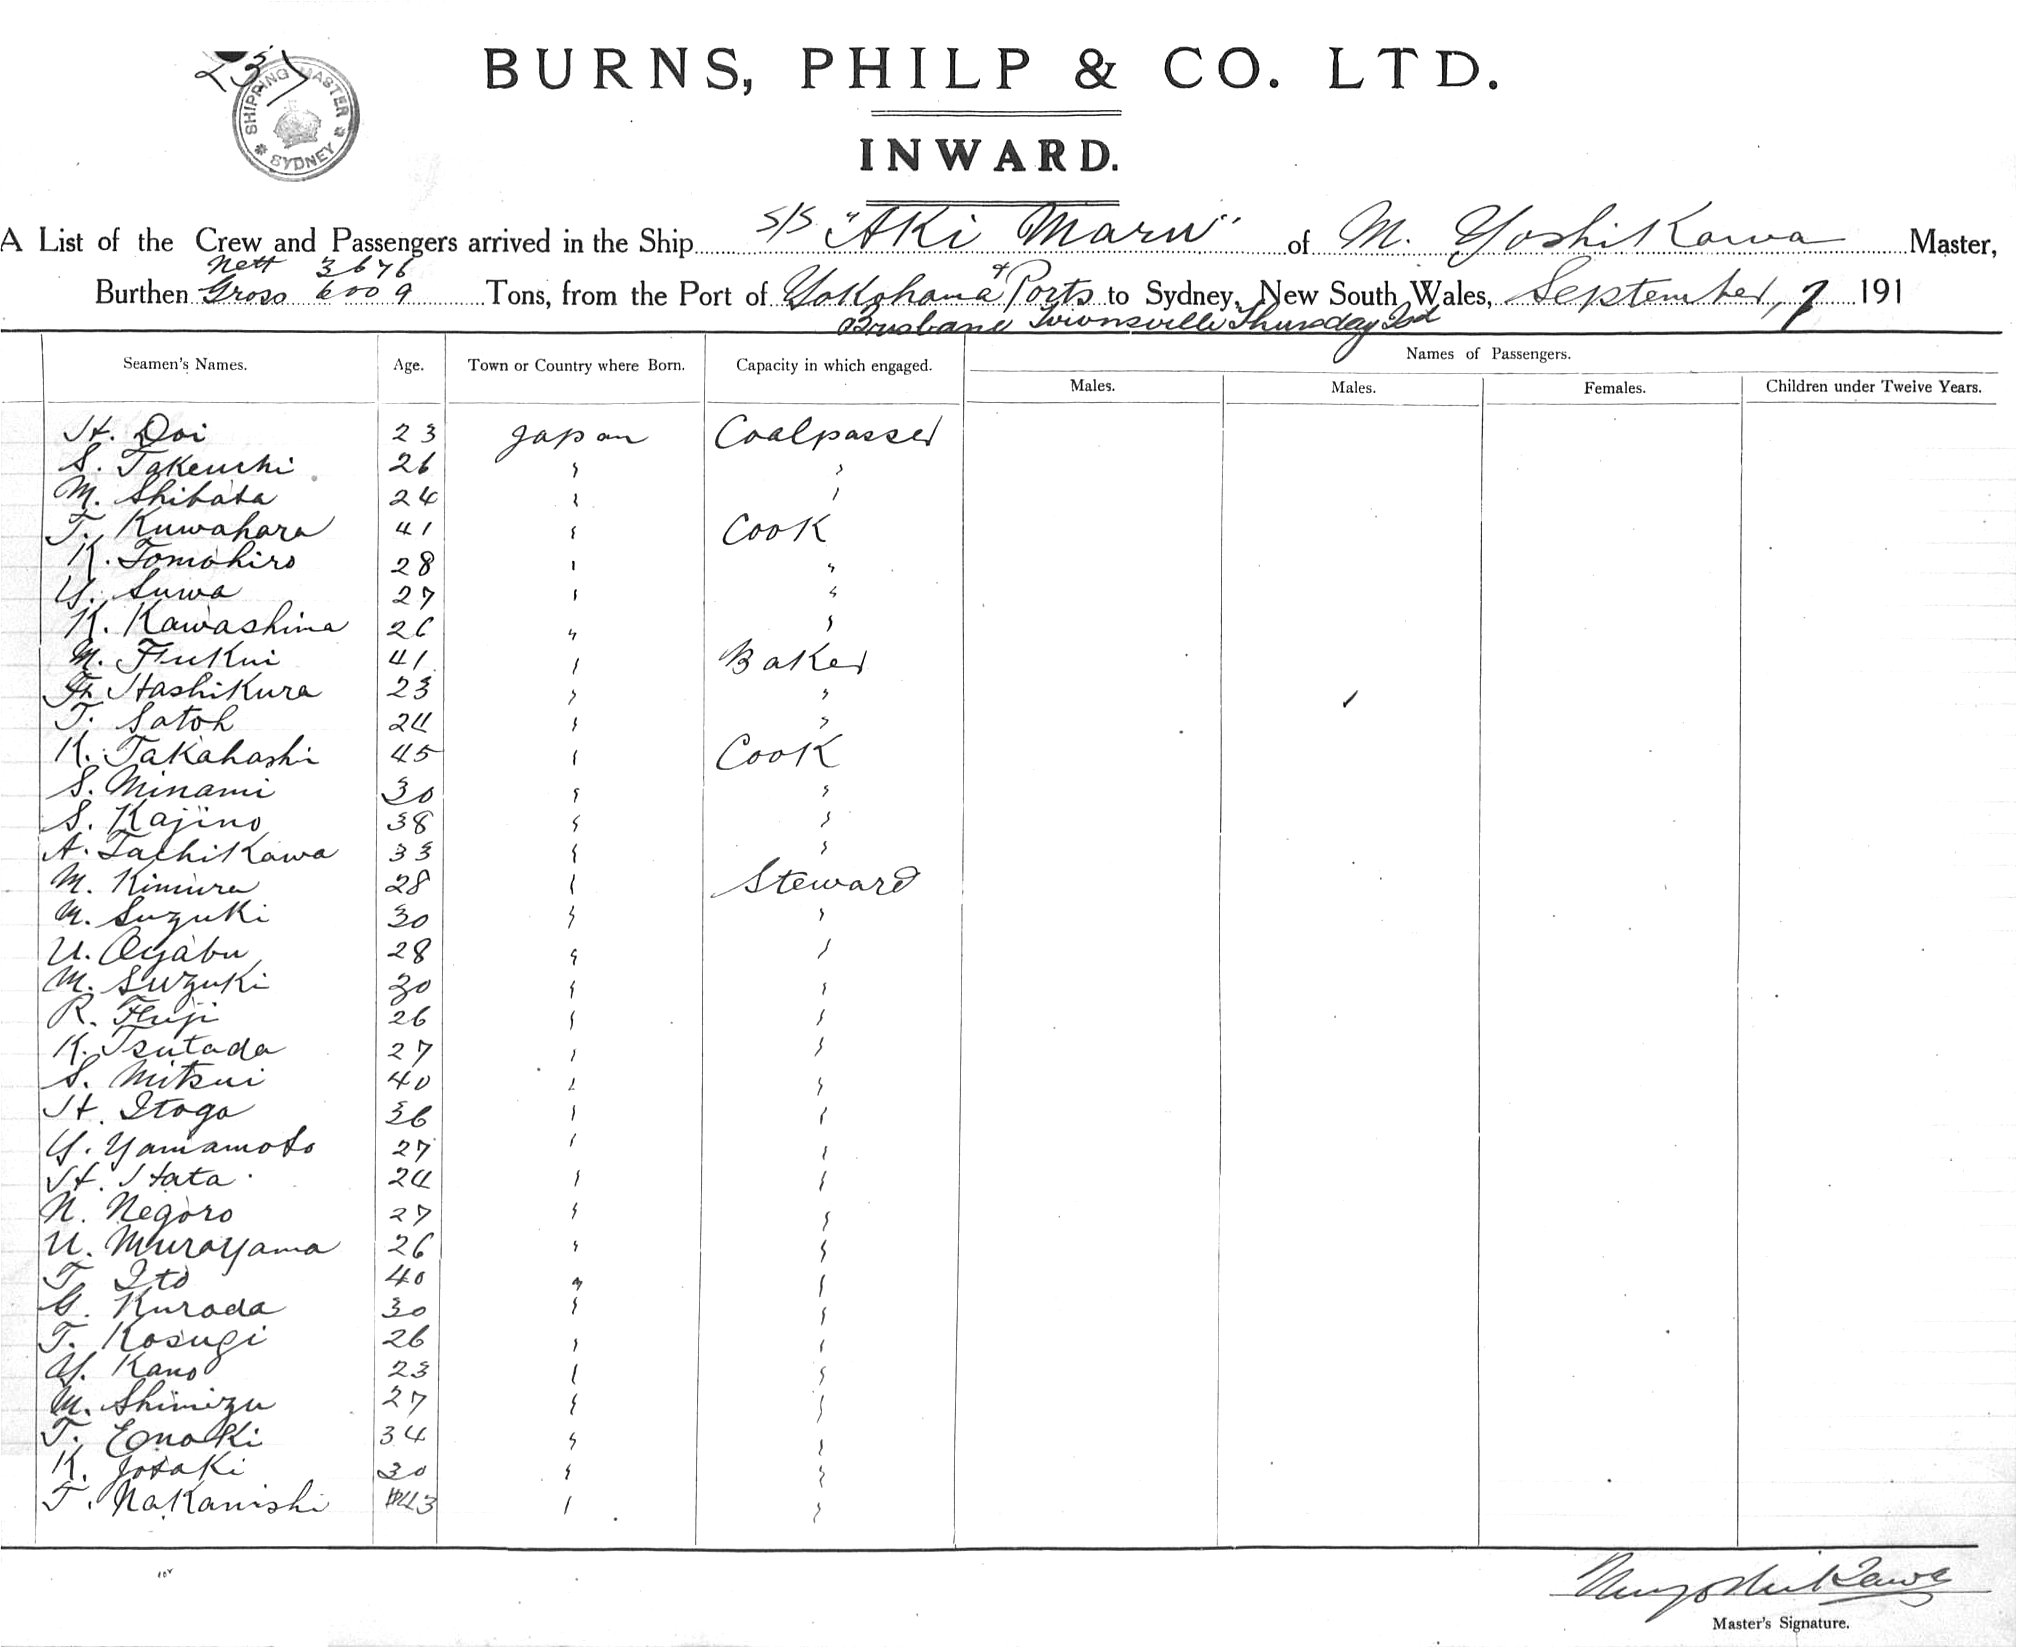 237
SHIPPING MASTER
SYDNEY
BURNS, PHILP & CO. LTD.
INWARD.
A List of the Crew and Passengers arrived in the Ship S/S "Aki Maru" of M. Yoshikawa Master,
Nett 3676
Burthen Gross 6009 Tons, from the Port of Yokohama & Ports to Sydney, New South Wales, September, 7 191
Brisbane Townsville Thursday Isd
Names of Passengers.
Seamen's Names. Age. Town or Country where Born. Capacity in which engaged.
Males. Males. Females. Children under Twelve Years.
H. Doi 23 Japan Coalpasser
S. Takeuchi 26 " "
M. Shibata 24 " "
T. Kuwahara 41 " Cook
K. Tomohiro 28 " "
Y. Suwa 27 " "
K. Kawashima 26 " "
M. Fukui 41 " Baker
Hashikura 23 " "
T. Satoh 24 " "
K. Takahashi 45 " Cook
S. Minami 30 " "
S. Kajino 38 " "
A. Tachikawa 33 " "
M. Kimura 28 " Steward
M. Suzuki 30 " "
U. Oyabu 28 " "
M. Suzuki 30 " "
R. Fuji 26 " "
K. Tsutada 27 " "
S. Mitsui 40 " "
H. Itoga 36 " "
Y. Yamamoto 27 " "
H. Hata 24 " "
N. Negoro 27 " "
U. Murayama 26 " "
T. Ito 40 " "
G. Kuroda 30 " "
T. Kosugi 26 " "
Y. Kano 23 " "
M. Shimizu 27 " "
T. Enoki 34 " "
K. Josaki 30 " "
T. Nakanishi 43 " "
Master's Signature.